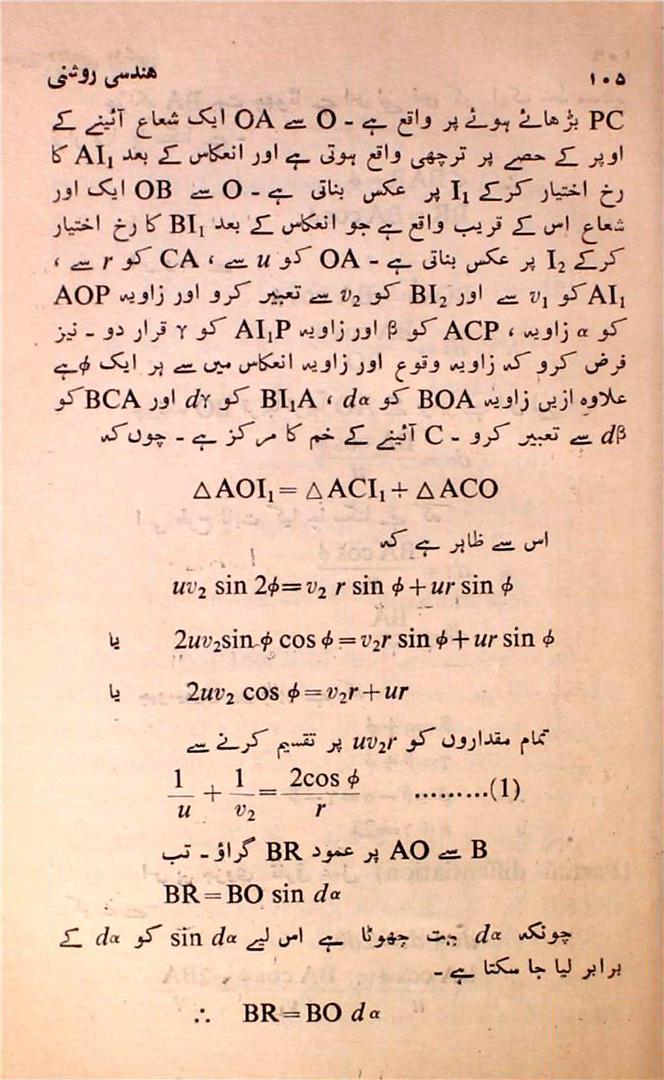 ۱۰۵ ھندسی روشنی
PC بڑھائے ہوئے پر واقع ہے ۔ O سے OA ایک شعاع آئینے کے
اوپر کے حصے پر ترچھی واقع ہوتی ہے اور انعکاس کے بعد AI₁ کا
رخ اختیار کرکے I₁ پر عکس بناتی ہے ۔ O سے OB ایک اور
شعاع اس کے قریب واقع ہے جو انعکاس کے بعد BI₁ کا رخ اختیار
کرکے I₂ پر عکس بناتی ہے ۔ OA کو u سے ، CA کو r سے ،
AI₁ کو v₁ سے اور BI₂ کو v₂ سے تعبیر کرو اور زاویہ AOP
کو α زاویہ ، ACP کو β اور زاویہ AI₁P کو γ قرار دو ۔ نیز
فرض کرو کہ زاویہ وقوع اور زاویہ انعکاس میں سے ہر ایک ϕ ہے
علاوہ ازیں زاویہ BOA کو dα ، BI₁A کو dγ اور BCA کو
dβ سے تعبیر کرو ۔ C آئینے کے خم کا مرکز ہے ۔ چوں کہ
△AOI₁ = △ACI₁ + △ACO
اس سے ظاہر ہے کہ
uv₂ sin 2ϕ = v₂ r sin ϕ + ur sin ϕ
یا 2uv₂ sin ϕ cos ϕ = v₂r sin ϕ + ur sin ϕ
یا 2uv₂ cos ϕ = v₂r + ur
تمام مقداروں کو uv₂r پر تقسیم کرنے سے
1/u + 1/v₂ = 2cos ϕ/r .........(1)
B سے AO پر عمود BR گراؤ ۔ تب
BR = BO sin dα
چونکہ dα بہت چھوٹا ہے اس لیے sin dα کو dα کے
برابر لیا جا سکتا ہے ۔
∴ BR = BO dα